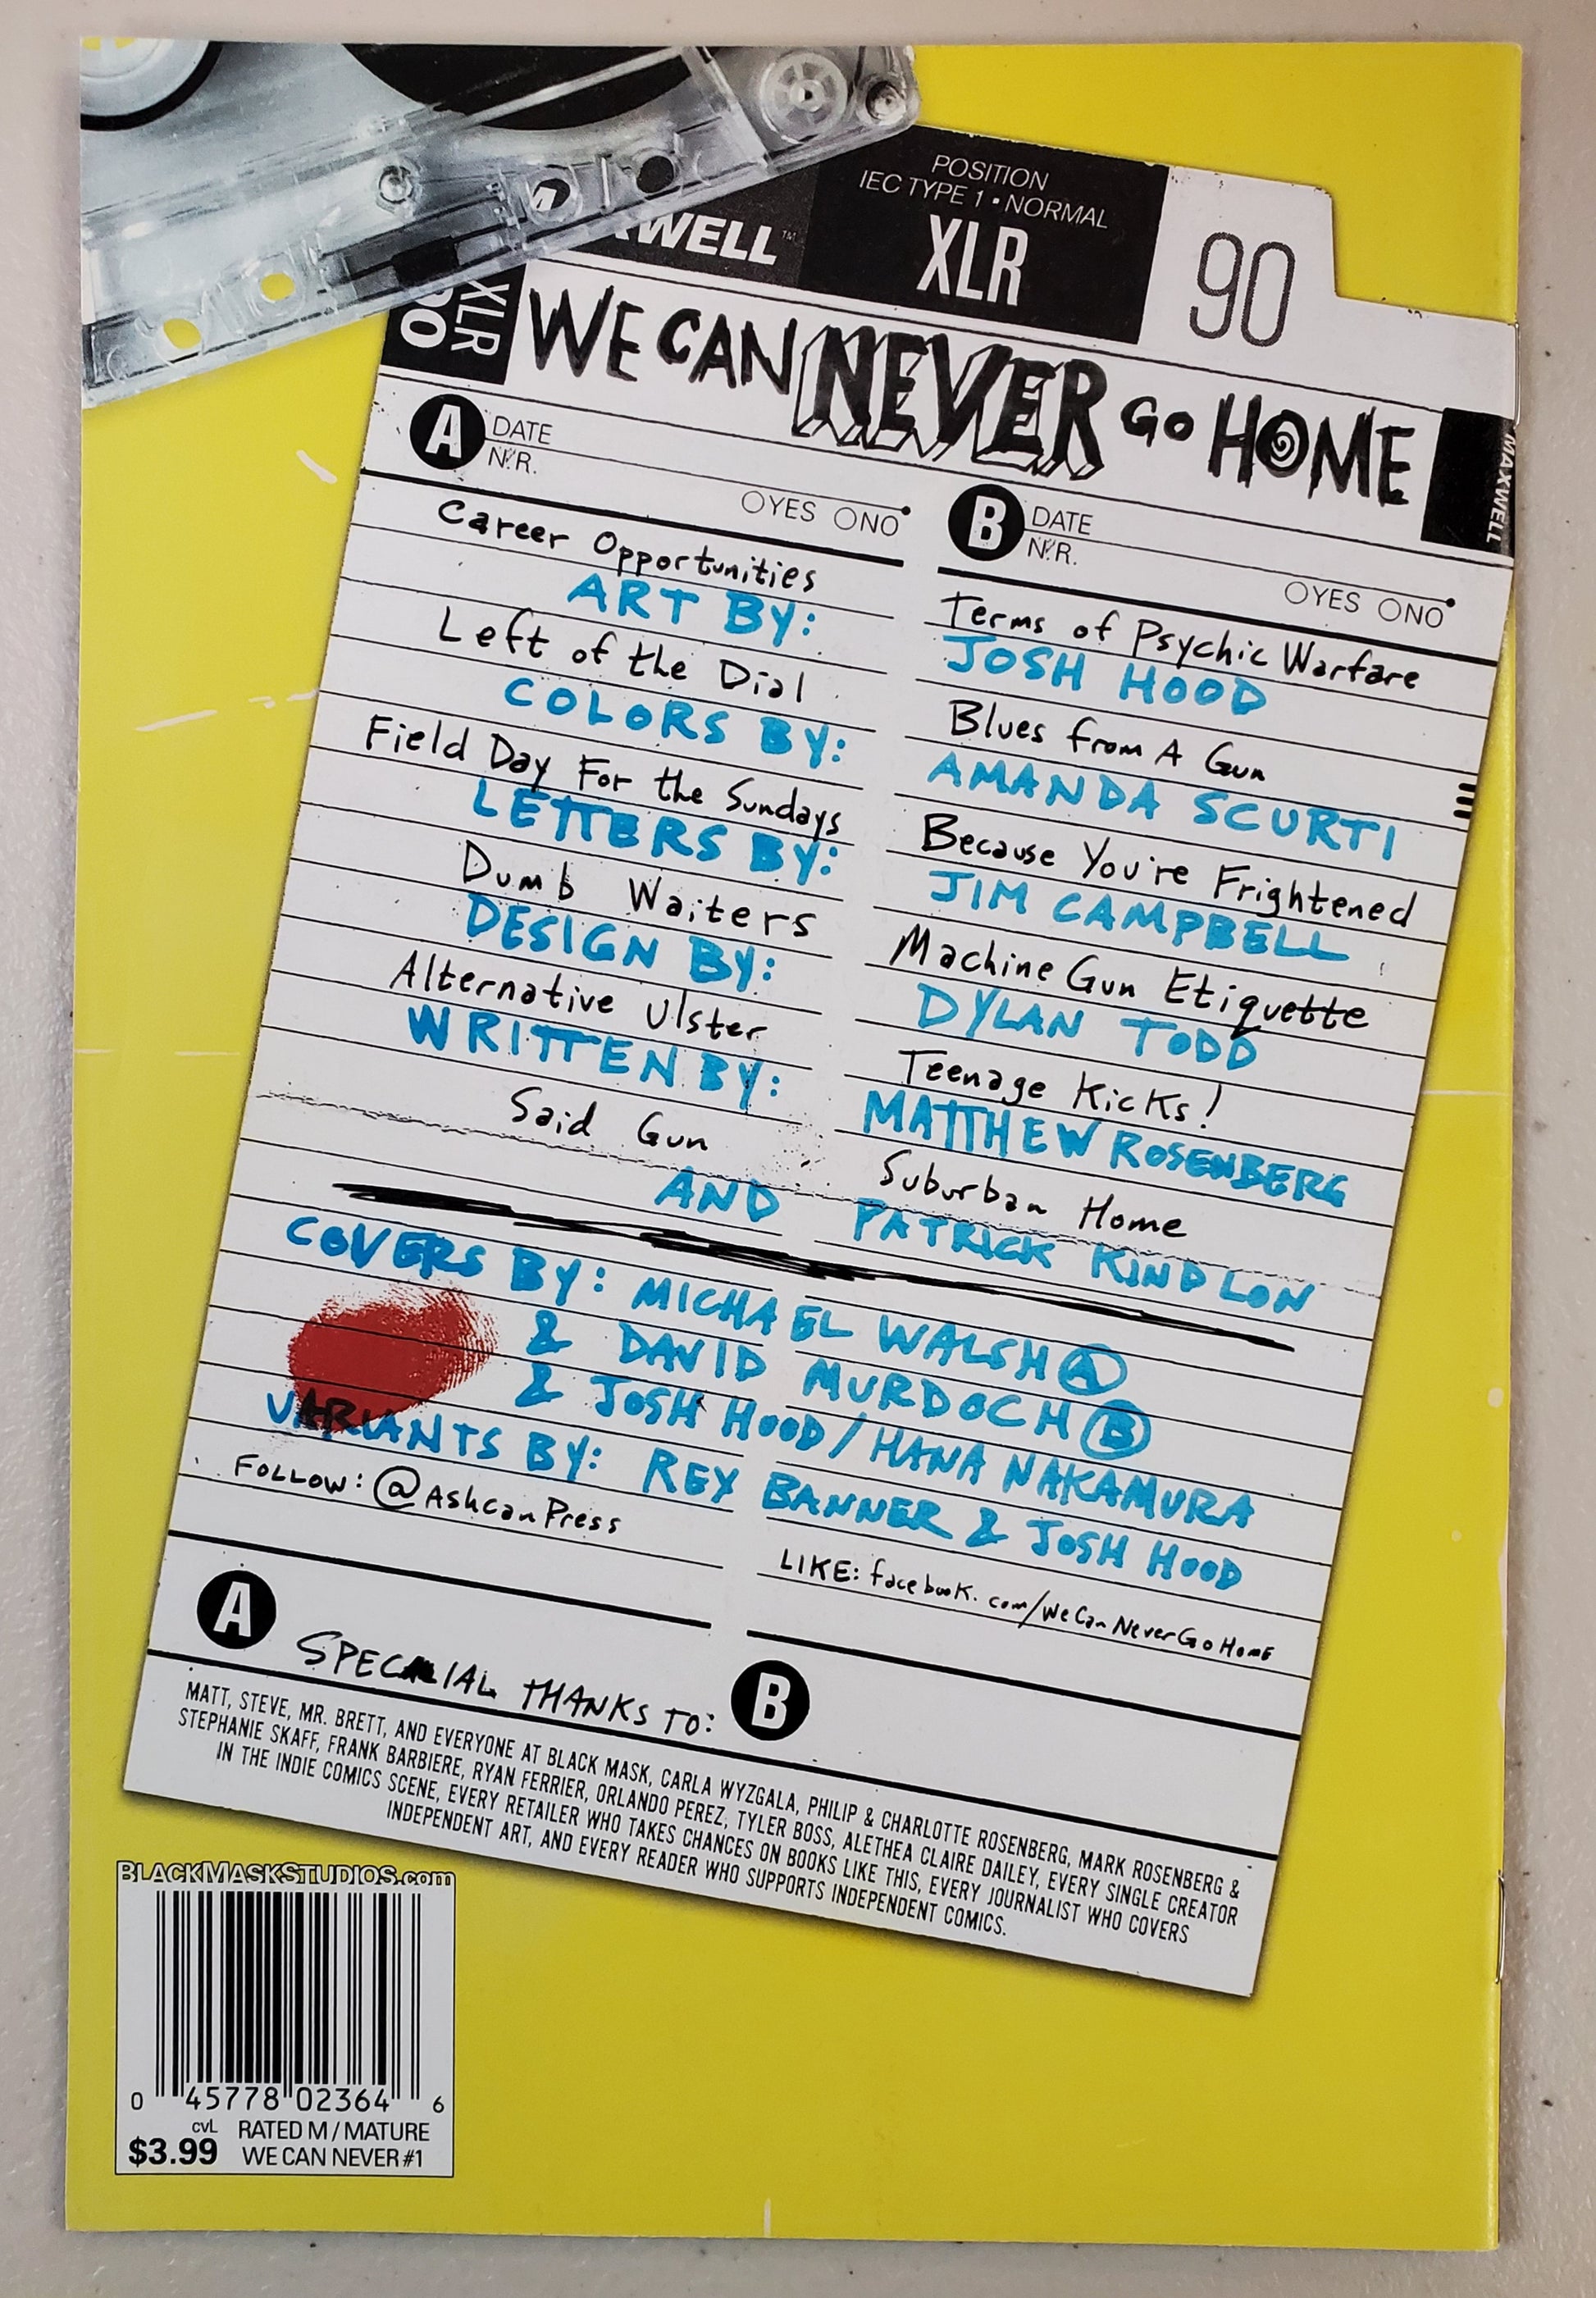 POSITION
IEC TYPE 1 • NORMAL
XLR
90
XWELL™
XLR
90
WE CAN NEVER GO HOME
MAXWELL
A DATE
N.R.
YES NO
B DATE
N.R.
YES NO
Career Opportunities
ART BY:
Left of the Dial
COLORS BY:
Field Day For the Sundays
LETTERS BY:
Dumb Waiters
DESIGN BY:
Alternative Ulster
WRITTEN BY:
Said Gun
AND
Terms of Psychic Warfare
JOSH HOOD
Blues from A Gun
AMANDA SCURTI
Because You're Frightened
JIM CAMPBELL
Machine Gun Etiquette
DYLAN TODD
Teenage Kicks!
MATTHEW ROSENBERG
Suburban Home
PATRICK KINDLON
COVERS BY: MICHAEL WALSH A
& DAVID MURDOCH B
& JOSH HOOD / HANA NAKAMURA
VARIANTS BY: REX BANNER & JOSH HOOD
FOLLOW: @AshcanPress
LIKE: facebook.com/WeCanNeverGoHome
A
SPECIAL THANKS TO:
B
MATT, STEVE, MR. BRETT, AND EVERYONE AT BLACK MASK, CARLA WYZGALA, PHILIP & CHARLOTTE ROSENBERG, MARK ROSENBERG &
STEPHANIE SKAFF, FRANK BARBIERE, RYAN FERRIER, ORLANDO PEREZ, TYLER BOSS, ALETHEA CLAIRE DAILEY, EVERY SINGLE CREATOR
IN THE INDIE COMICS SCENE, EVERY RETAILER WHO TAKES CHANCES ON BOOKS LIKE THIS, EVERY JOURNALIST WHO COVERS
INDEPENDENT ART, AND EVERY READER WHO SUPPORTS INDEPENDENT COMICS.
BLACKMASKSTUDIOS.com
0 45778 02364 6
cvL RATED M / MATURE
$3.99 WE CAN NEVER #1